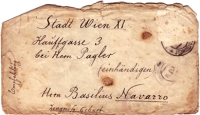 Stadt Wien XI
Hauffgasse 3
bei Herrn Pagler
(einhändigen)
Herrn Basilius Navarro